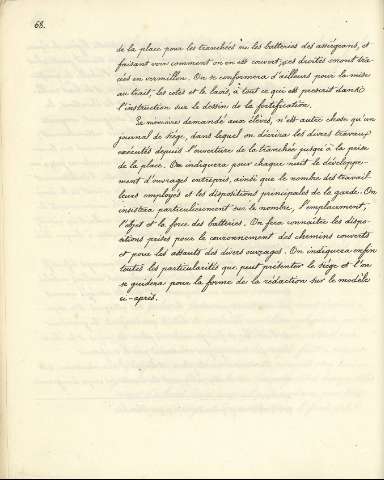 68.
de la place pour les tranchées ou les batteries des assiégeants, et
faisant voir comment on en est couvert; ces droites seront tra-
cées en vermillon. On se conformera d'ailleurs pour la mise
au trait, les cotes et le lavis, à tout ce qui est prescrit dans
l'instruction sur le dessin de la fortification.
Le mémoire demandé aux élèves, n'est autre chose qu'un
journal de siège, dans lequel on décrira les divers travaux
exécutés depuis l'ouverture de la tranchée jusqu'à la prise
de la place. On indiquera pour chaque nuit le développe-
ment d'ouvrages entrepris, ainsi que le nombre des travail-
leurs employés et les dispositions principales de la garde. On
insistera particulièrement sur le nombre, l'emplacement,
l'objet et la force des batteries. On fera connaître les dispo-
sitions prises pour le couronnement des chemins couverts
et pour les assauts des divers ouvrages. On indiquera enfin
toutes les particularités que peut présenter le siège et l'on
se guidera pour la forme de la rédaction sur le modèle
ci-après.